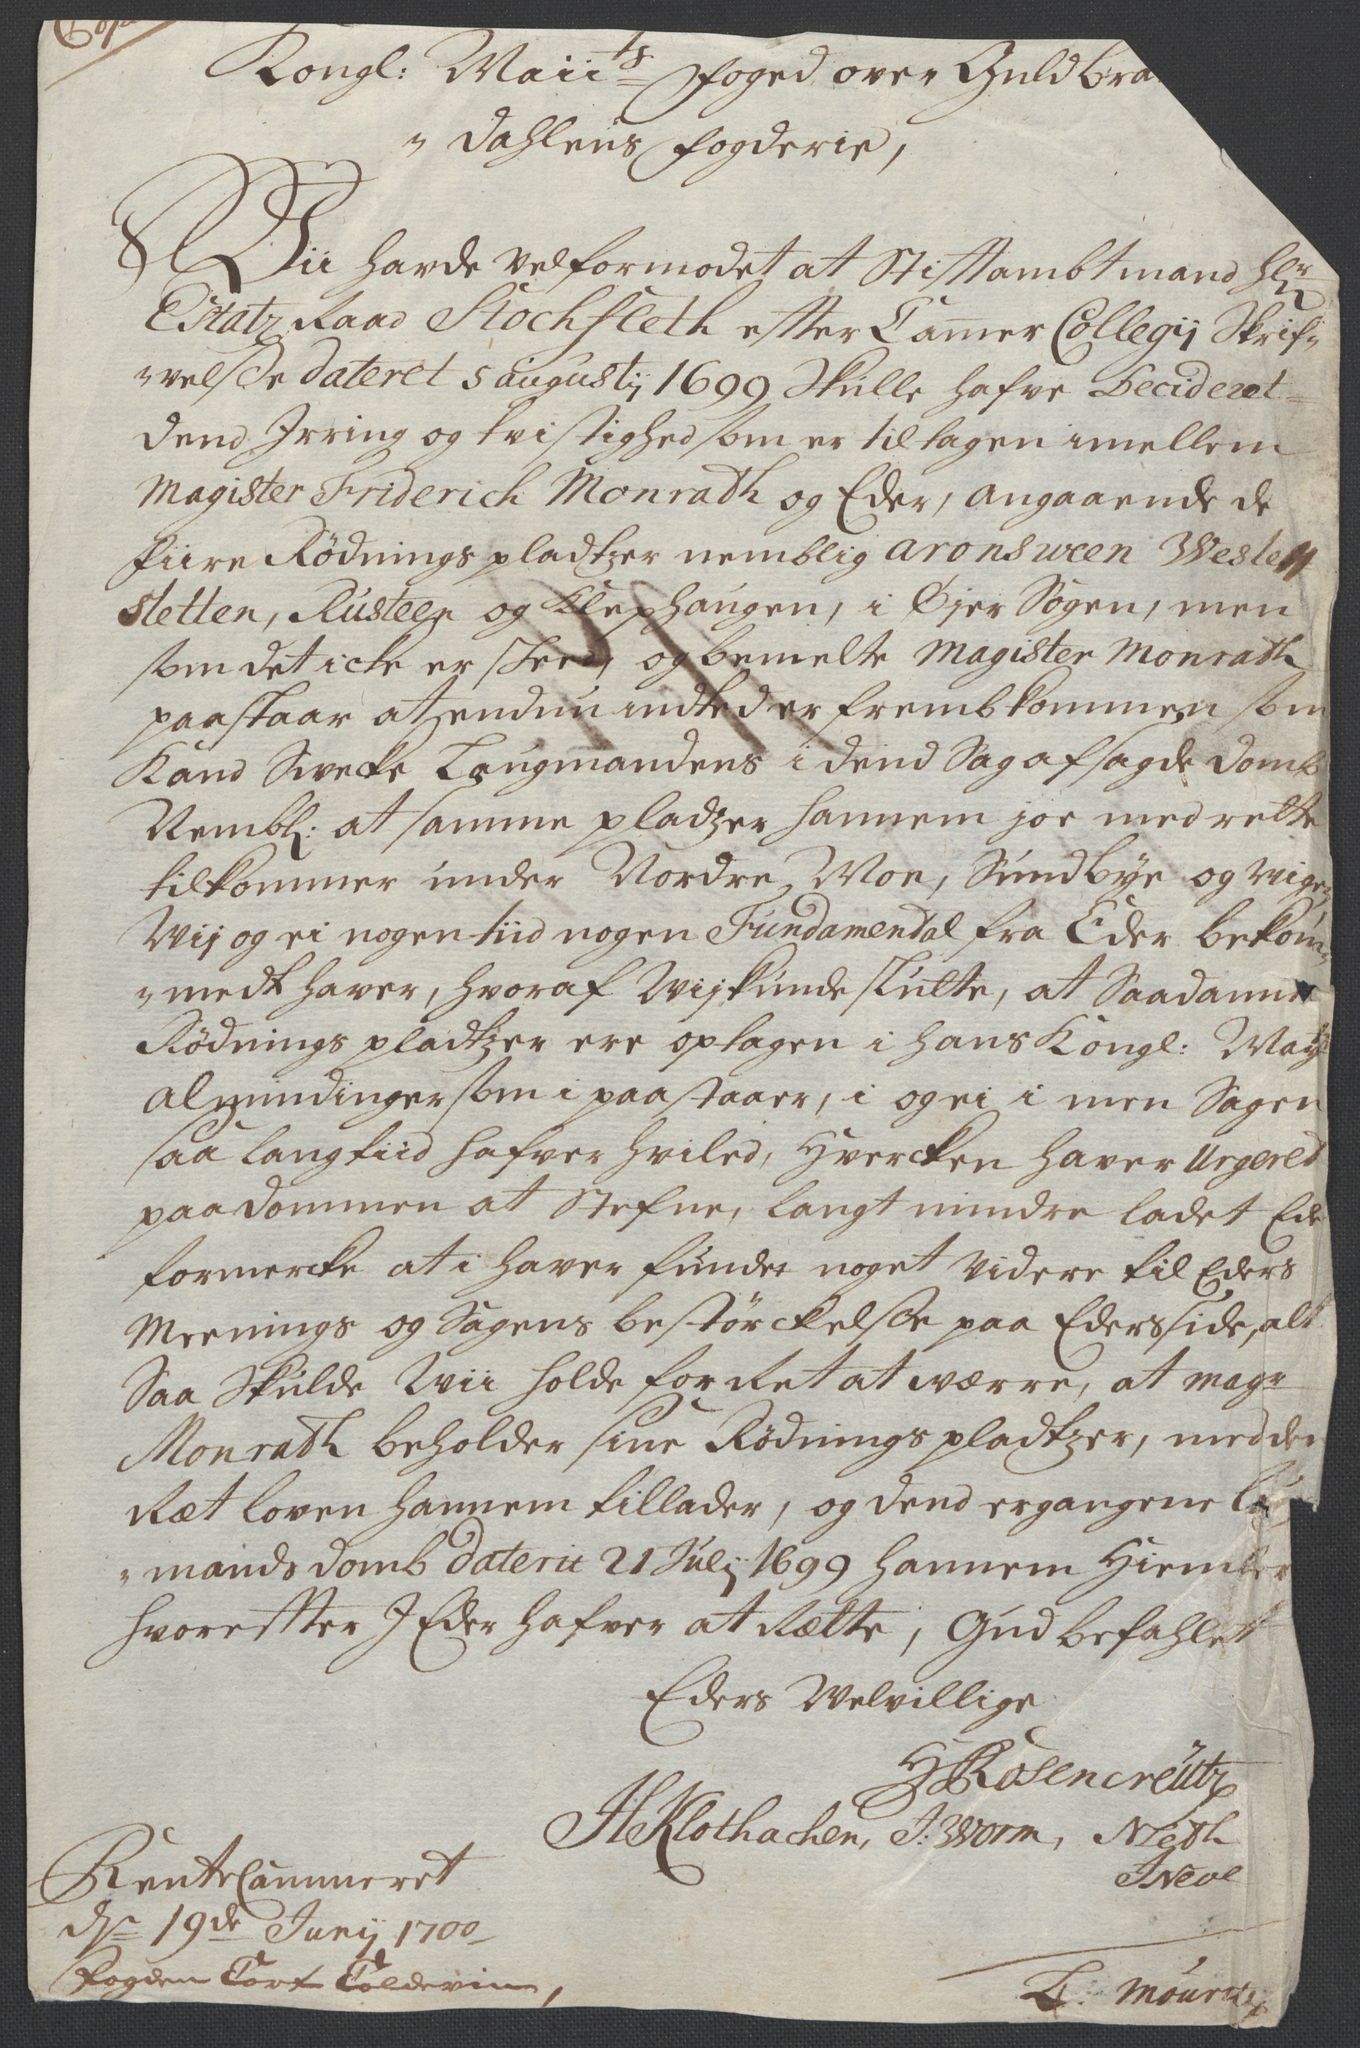 Copie
Kongl: Maiits foged over Guldbra
" dahlens fogderie,
Wii hafde velformodet at Stiftambtmand hr
Etatz Raad Stochfleth efter Cammer Collegij Skrif"
"velsse dateret 5 augustij 1699 Skulle hafve Decideret
dend Irring og tvistighed som er tiltagen imellem
Magister Friderich Monrath og Eder, angaaende de
fiire Rødnings pladtzer nemblig aronsween Wesle
sletten, Rusteen og Klephaugen, i Øjer Sogen, men
som det icke er skeed, og bemelte Magister Monrath
paastaar at endnu indted er frembkommen som
Kand Svecke Laugmandens i dend Sag afsagde domb
Nembl: at samme pladzer hannem joe med rette
tilkommer under Nordre Moe, Sundbye og wigen
Wij og ei nogen tiid nogen Fundamental fra Eder bekom"
"medt haver, hvoraf Wij kunde slutte, at Saadanne
Rødnings pladtzer ere optagen i hans Kongl: May
almindinger som i paastaaer, i og ei i men Sagen
saa lang tiid hafver hviled, Hvercken haver Urgered
paa dommen at Stefne, langt mindre ladet Ede
formercke at i haver funden noget videre til Eders
Meenings og Sagens bestørckelsse paa Eders side, alt
Saa Skulde Wii holde for Ret at værre, at magr
Monrath beholder sine Rødnings pladtzer, med den
Ræt loven hannem tillader, og dend ergangene
"mands domb daterit 21 Julij 1699 hannem Hiembler
hvorefter I Eder hafver at Rætte, Gud befahlet
Eders Velvillige
H Rosencreutz
H Klothacken, J: Worm, Meth
JNeve
RenteCammeret
ds 19de Junij 1700
fogden Tort Coldevin,
L. Mouritz